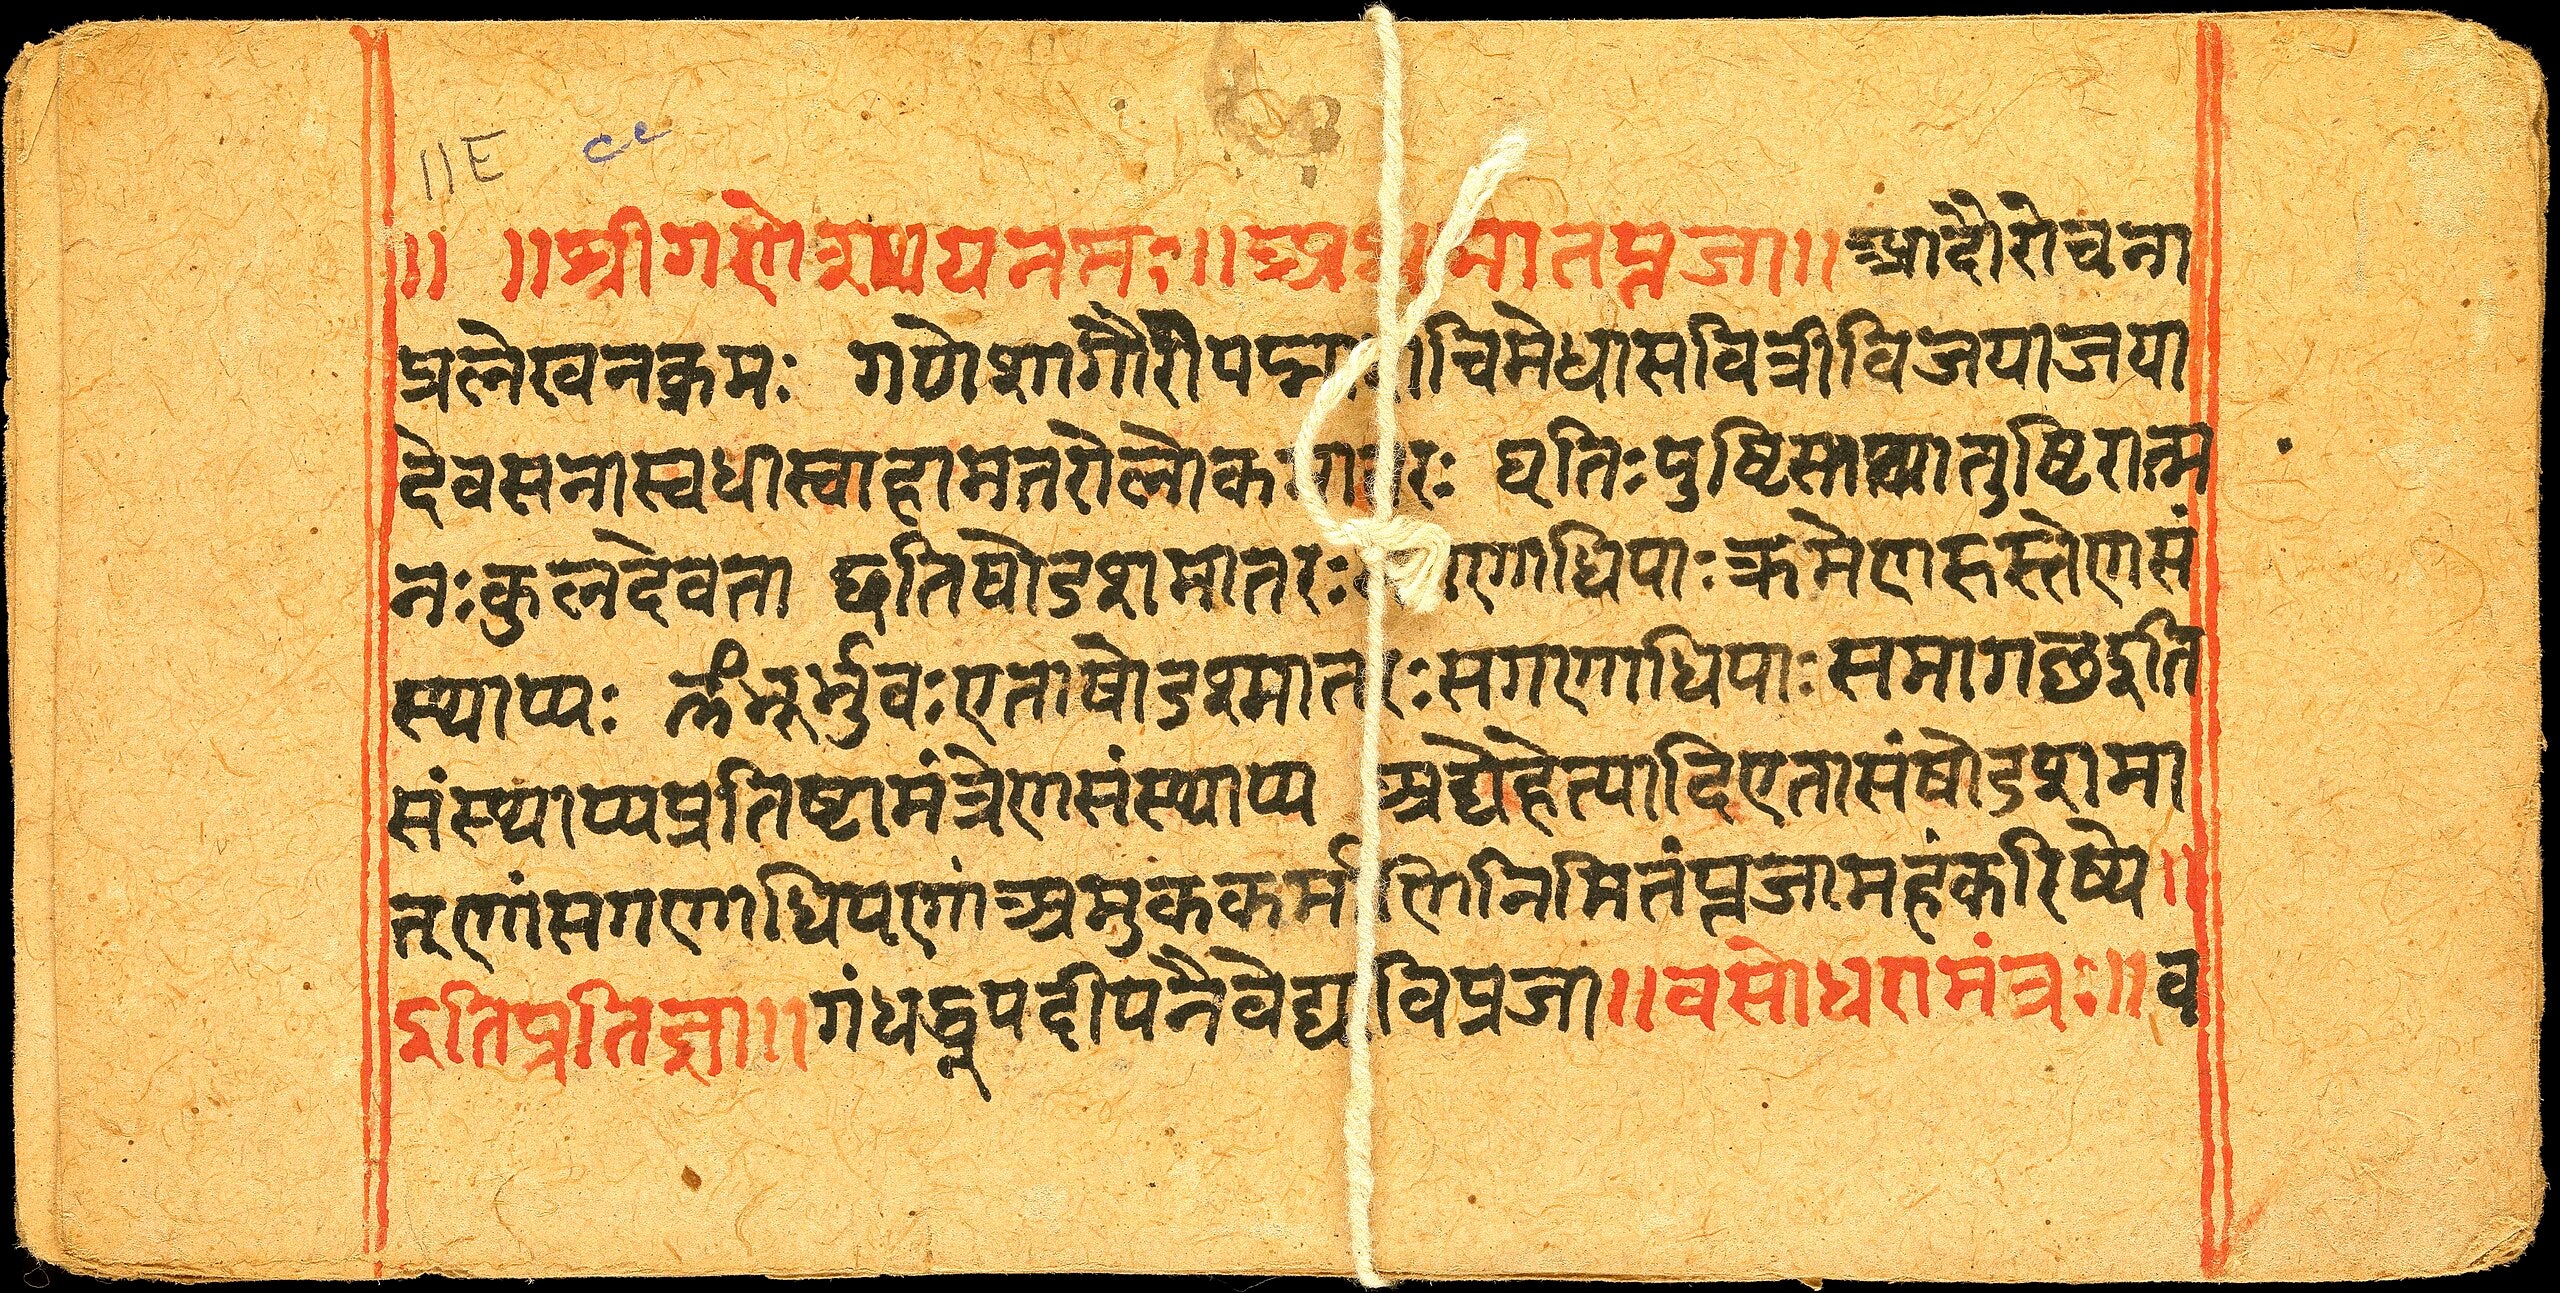 11E ee
॥ ॥श्रीगणेशायनमः॥ ॥
आदौरोचना
प्रलेखनक्रमः गणेशागौरीपद्मा चिमेधासवित्रीविजयाजया
देवसनास्वधास्वाहामतरोलोक धृतिःपुष्टिस्तथातुष्टिरात्म
नःकुलदेवता इतिषोडशमातरः णाधिपाःक्रमेणहस्तेणसं
स्थाप्यः ॐभूर्भुवःएताषोडश्मातरःसगणाधिपाःसमागछइति
संस्थाप्यप्रतिष्टामंत्रेणसंस्थाप्य अद्येहेत्यादिएतासंषोडशमा
तृणांसगणाधिपणांअमुककर्म निमितंपूजामहंकरिष्ये॥
इतिप्रतिज्ञा॥गंधधूपदीपनैवेद्य विप्रजा॥वसोधरामंत्रः॥व